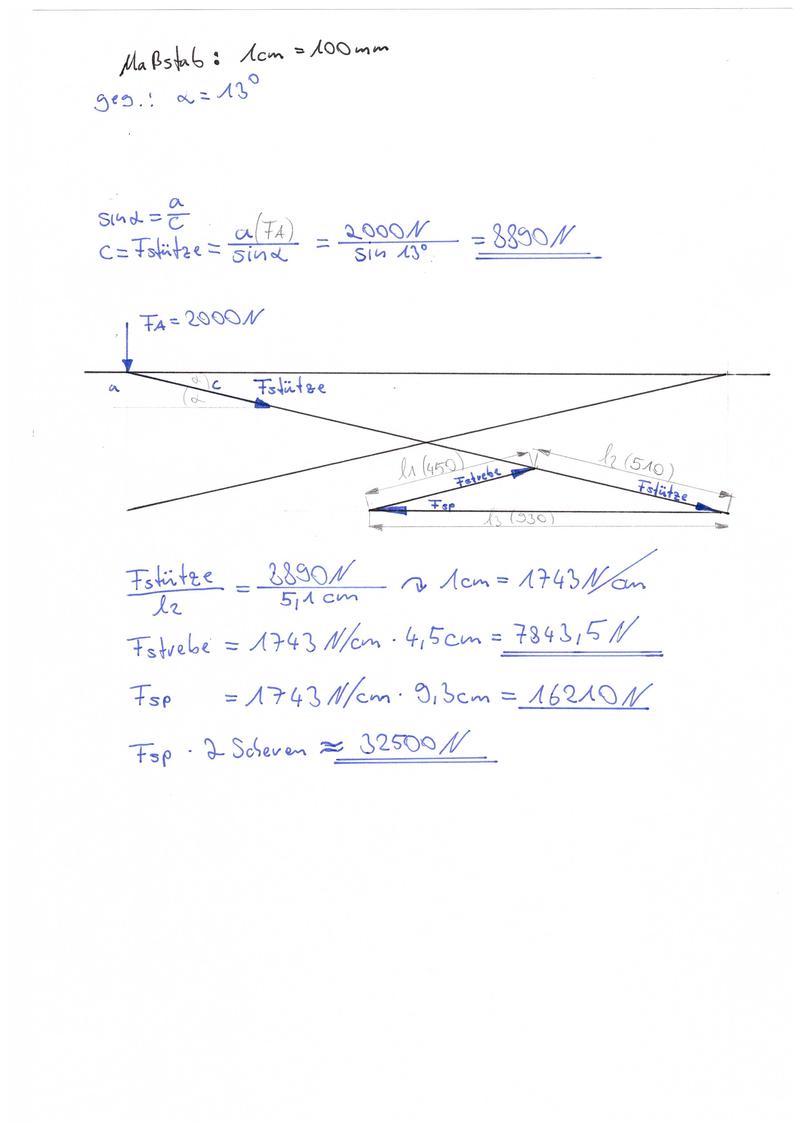 Maßstab: 1cm = 100mm
geg.: α = 13°
sinα = a/c
c = Fstütze = a(FA)/sinα = 2000N/sin 13° = 8890N
FA = 2000N
a α c Fstütze
α
l1 (450) l2 (510)
Fstrebe Fstütze
Fsp
l3 (930)
Fstütze/l2 = 8890N/5,1cm ↷ 1cm = 1743 N/cm
Fstrebe = 1743 N/cm · 4,5cm = 7843,5 N
Fsp = 1743 N/cm · 9,3cm = 16210N
Fsp · 2 Scheren ≈ 32500N